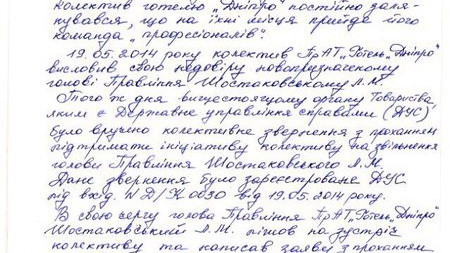 Колектив готелю „Дніпро" постійно заля-
кувався, що на їхні місця прийде його
команда „професіоналів".
19.05.2014 року колектив ПрАТ „Готель „Дніпро"
висловив свою недовіру новопризначеному
голові Правління Шостаковському Л.М.
Того ж дня вищестоящому органу Товариства,
яким є Державне управління справами (ДУС),
було вручено колективне звернення з проханням
підтримати ініціативу колективу на звільнення
голови Правління Шостаковського Л.М.
Дане звернення було зареєстроване ДУС
під вхід. № Д/К 0030 від 19.05.2014 року.
В свою чергу голова Правління ПрАТ „Готель „Дніпро"
Шостаковський Л.М. пішов на зустріч
колективу та написав заяви з проханням